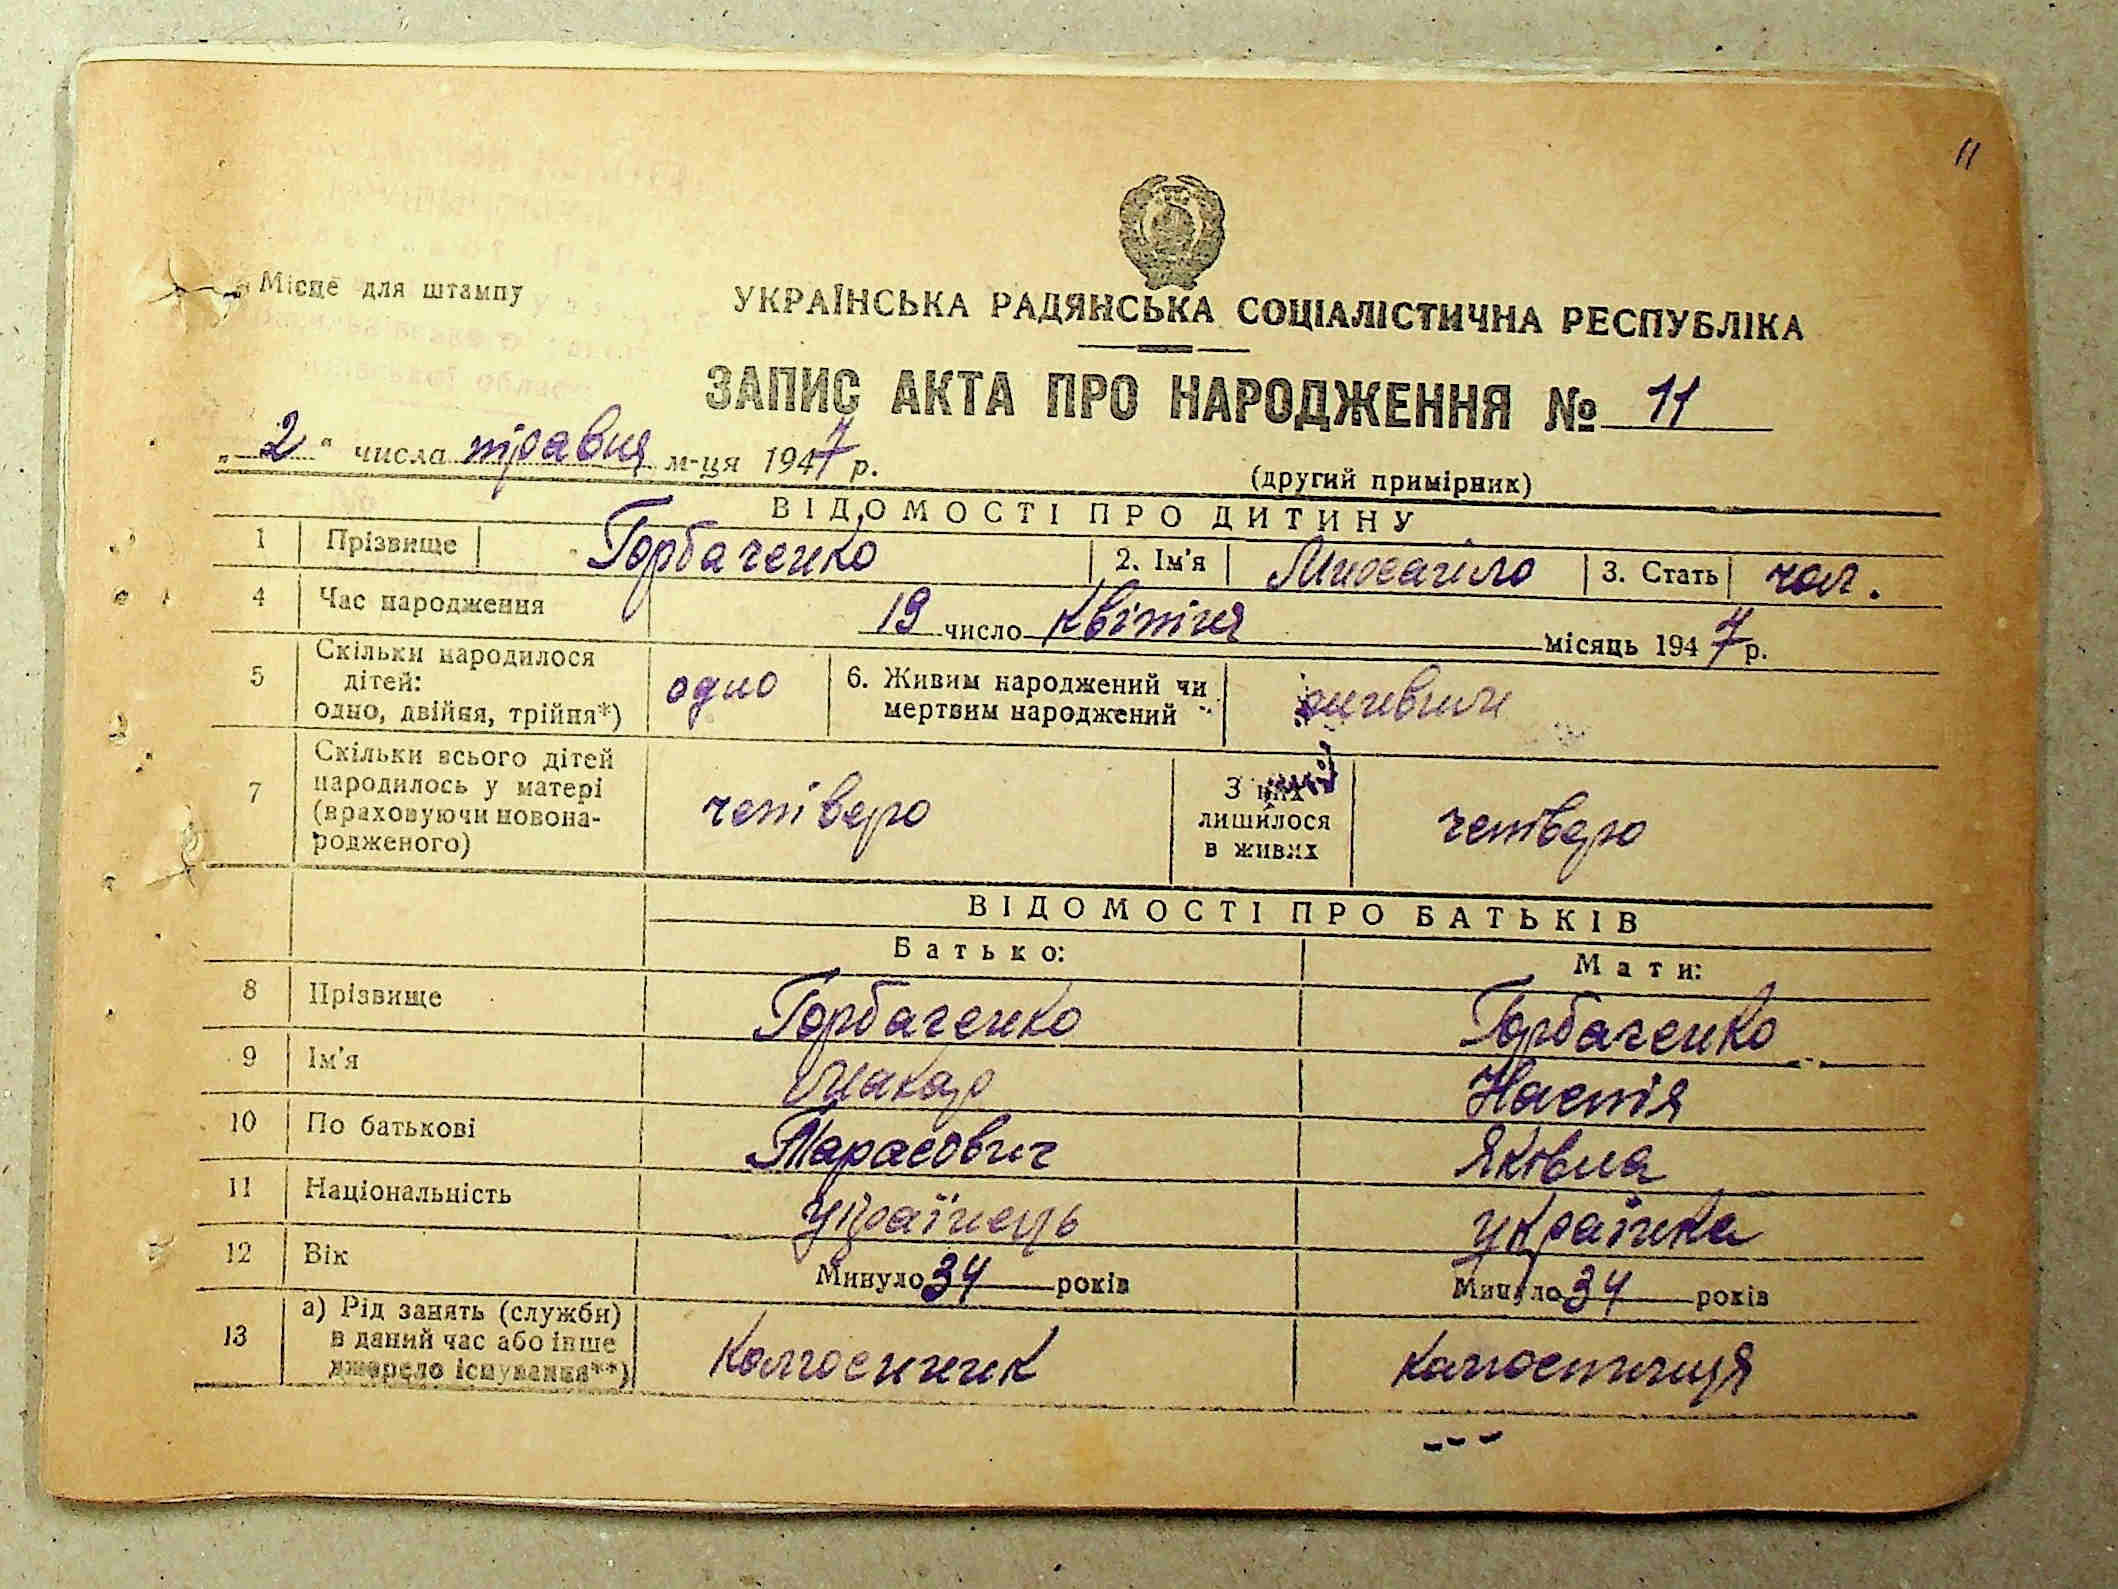 11
Місце для штампу
УКРАЇНСЬКА РАДЯНСЬКА СОЦІАЛІСТИЧНА РЕСПУБЛІКА
ЗАПИС АКТА ПРО НАРОДЖЕННЯ № 11
„2“ числа травня м-ця 1947 р.
(другий примірник)
ВІДОМОСТІ ПРО ДИТИНУ
1 Прізвище Горбаченко 2. Ім'я Михайло 3. Стать чол.
4 Час народження 19 число квітня місяць 1947 р.
5 Скільки народилося дітей: одно, двійня, трійня*) одно 6. Живим народжений чи мертвим народжений живим
7 Скільки всього дітей народилось у матері (враховуючи новонародженого) четверо З них лишилося в живих четверо
ВІДОМОСТІ ПРО БАТЬКІВ
Батько: Мати:
8 Прізвище Горбаченко Горбаченко
9 Ім'я Макар Настія
10 По батькові Тарасович Яківна
11 Національність українець українка
12 Вік Минуло 34 років Минуло 34 років
13 а) Рід занять (служби) в даний час або інше джерело існування**) колгоспник колгоспниця